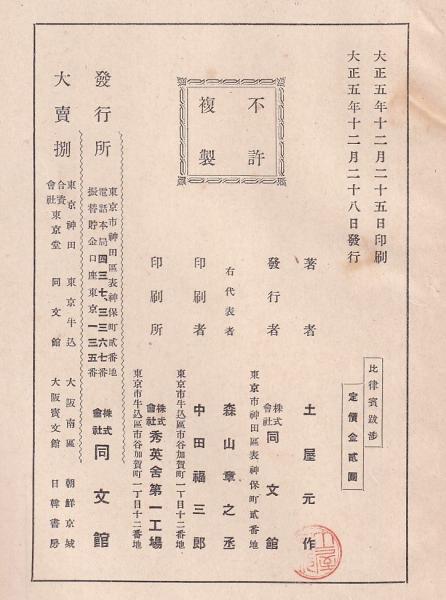 大正五年十二月二十五日印刷
大正五年十二月二十八日發行
比律賓跋渉
定價金貳圓
不許
複製
著者 土屋元作
發行者 株式會社 同文館
東京市神田區表神保町貳番地
右代表者 森山章之丞
印刷者 中田福三郎
東京市牛込區市谷加賀町一丁目十二番地
印刷所 株式會社 秀英舍第一工場
東京市牛込區市谷加賀町一丁目十二番地
發行所 株式會社 同文館
東京市神田區表神保町貳番地
電話本局四三七、三三六七番
振替貯金口座東京一三五番
大賣捌
東京神田 合資會社 東京堂
東京牛込 同文館
大阪南區 大阪寳文館
朝鮮京城 日韓書房